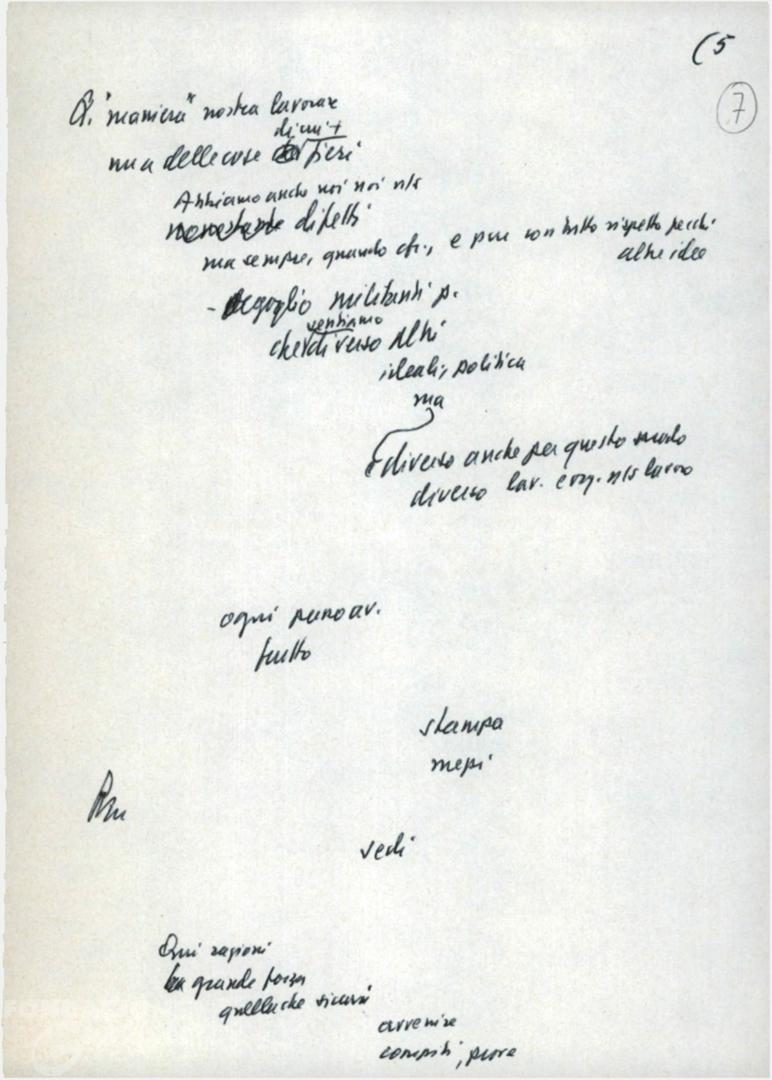 (5
7
"maniera" nostra lavorare
di cui +
una delle cose fieri
Abbiamo anche noi noi ns
difetti
ma sempre, quando c'è, e pur con tutto rispetto per chi
altre idee
- orgoglio militanti p.
sentiamo
che diverso altri
ideali, politica
ma
è diverso anche per questo modo
diverso lav. ns lavoro
ogni
tutto
stampa
mesi
vedi
Qui ragioni
grande forza
quella che
avvenire
compiti, prove